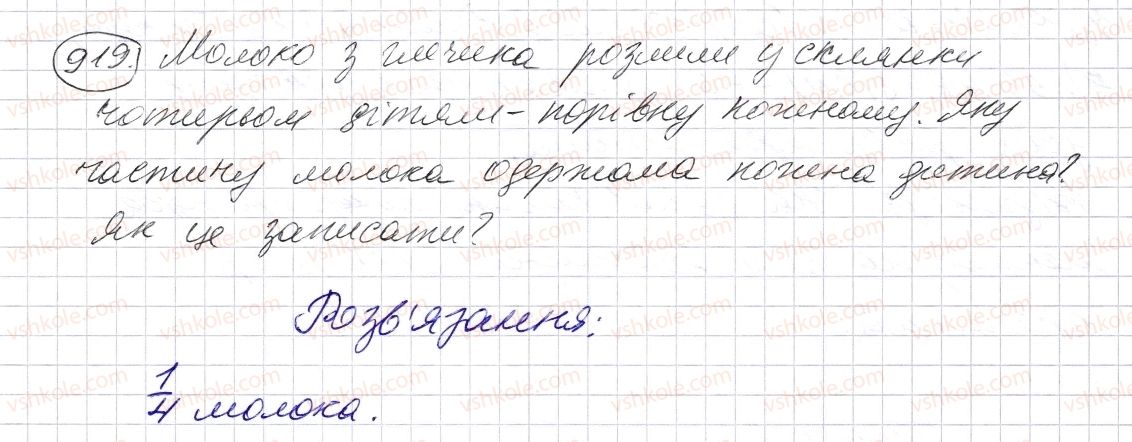 919. Молоко з глечика розлили у склянки
чотирьом дітям - порівну кожному. Яку
частину молока одержала кожна дитина?
Як це записати?
Розв'язання:
1/4 молока.